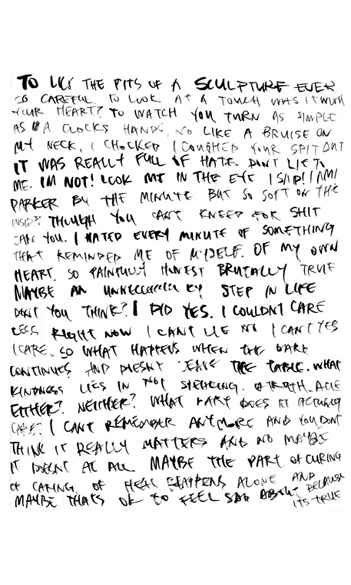 TO LICK THE PITS OF A SCULPTURE EVER
SO CAREFUL TO LOOK AT A TOUCH WAS IT WORTH
YOUR HEART? TO WATCH YOU TURN AS SIMPLE
AS A CLOCKS HANDS, NO LIKE A BRUISE ON
MY NECK. I CHOKED I COUGHED YOUR SPIT OUT
IT WAS REALLY FULL OF HATE. DONT LIE TO
ME. IM NOT! LOOK ME IN THE EYE I SAID! I AM!
DARKER BY THE MINUTE BUT SO SOFT ON THE
INSIDE? THOUGH YOU CANT KNEED FOR SHIT
CAN YOU. I HATED EVERY MINUTE OF SOMETHING
THAT REMINDED ME OF MYSELF. OF MY OWN
HEART. SO PAINFULLY HONEST BRUTALLY TRUE
MAYBE AN UNNECESSARY STEP IN LIFE
DONT YOU THINK? I DID YES. I COULDNT CARE
LESS RIGHT NOW I CANT LIE NO I CANT YES
I CARE. SO WHAT HAPPENS WHEN THE
CONTINUES AND DOESNT LEAVE THE TABLE. WHAT
KINDNESS LIES IN NOT SPEAKING.
EITHER? NEITHER? WHAT PART DOES IT ACTUALLY
I CANT REMEMBER ANYMORE AND YOU DONT
THINK IT REALLY MATTERS AND NO MAYBE
IT DOESNT AT ALL. MAYBE THE PART OF CURING
OF CARING OF HEAL HAPPENS ALONE AND
MAYBE THATS OK TO FEEL SAD ABOUT BECAUSE
ITS TRUE